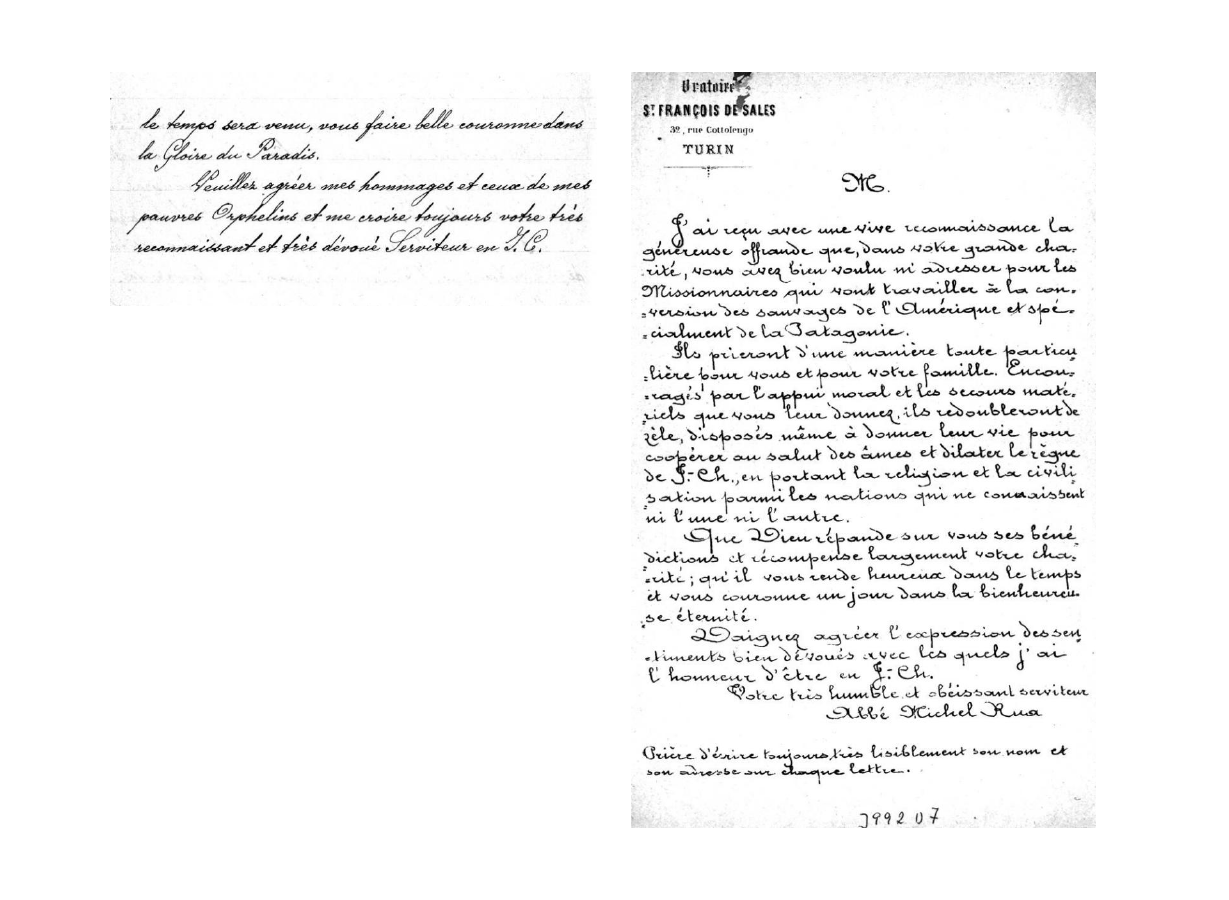 le temps sera venu, vous faire belle couronne dans
la Gloire du Paradis.
Veuillez agréer mes hommages et ceux de mes
pauvres Orphelins et me croire toujours votre très
reconnaissant et très dévoué Serviteur en J. C.
Oratoire
ST FRANÇOIS DE SALES
32, rue Cottolengo
TURIN
M.
J'ai reçu avec une vive reconnaissance la
généreuse offrande que, dans votre grande cha-
rité, vous avez bien voulu m'adresser pour les
Missionnaires qui vont travailler à la con-
-version des sauvages de l'Amérique et spé-
-cialment de la Patagonie.
Ils prieront d'une manière toute particu
-lière pour vous et pour votre famille. Encou-
-ragés par l'appui moral et les secours maté-
-riels que vous leur donnez, ils redoubleront de
zèle, disposés même à donner leur vie pour
coopérer au salut des âmes et dilater le règne
de J.-Ch., en portant la religion et la civili
sation parmi les nations qui ne connaissent
ni l'une ni l'autre.
Que Dieu répande sur vous ses béné
dictions et récompense largement votre cha-
-rité; qu'il vous rende heureux dans le temps
et vous couronne un jour dans la bienheureu-
se éternité.
Daignez agréer l'expression des sen
-timents bien dévoués avec les quels j'ai
l'honneur d'être en J.-Ch.
Votre très humble et obéissant serviteur
Abbé Michel Rua
Prière d'écrire toujours très lisiblement son nom et
son adresse sur chaque lettre.
3992 07